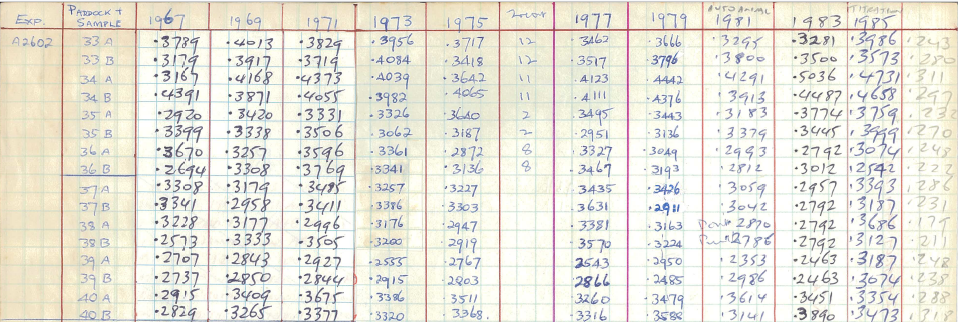 EXP. PADDOCK + SAMPLE 1967 1969 1971 1973 1975 1977 1979 AUTOANAL 1981 1983 TITRATION 1985
A2602 33 A .3789 .4013 .3829 .3956 .3717 12 .3462 .3666 .3295 .3281 .3986 .243
33 B .3179 .3917 .3719 .4084 .3418 12 .3517 .3796 .3800 .3500 .3573 .280
34 A .3167 .4168 .4373 .4039 .3642 11 .4123 .4442 .4291 .5036 .4731 .311
34 B .4391 .3871 .4055 .3982 .4065 11 .4111 .4376 .3913 .4487 .4658 .297
35 A .2920 .3420 .3331 .3326 .3640 2 .3495 .3443 .3183 .3774 .3759 .232
35 B .3399 .3338 .3506 .3062 .3187 2 .2951 .3136 .3379 .3445 .3999 .270
36 A .3670 .3257 .3596 .3361 .2872 8 .3327 .3049 .2993 .2792 .3074 .248
36 B .2694 .3308 .3769 .3341 .3136 8 .3467 .3193 .2812 .3012 .2542 .222
37 A .3308 .3179 .3485 .3257 .3227 .3435 .3426 .3059 .2957 .3393 .286
37 B .3341 .2958 .3411 .3386 .3303 .3631 .2911 .3042 .2792 .3187 .231
38 A .3228 .3177 .2996 .3176 .2947 .3381 .3163 .2870 .2792 .3686 .175
38 B .2573 .3333 .3505 .3200 .2919 .3570 .3224 .2786 .2792 .3127 .211
39 A .2707 .2843 .2927 .2535 .2767 .2543 .2950 .2353 .2463 .3187 .248
39 B .2737 .2850 .2844 .2915 .2803 .2866 .2485 .2986 .2463 .3074 .238
40 A .2915 .3409 .3675 .3386 .3511 .3260 .3479 .3614 .3451 .3354 .288
40 B .2829 .3265 .3377 .3320 .3368 .3316 .3588 .3141 .3890 .3473 .318